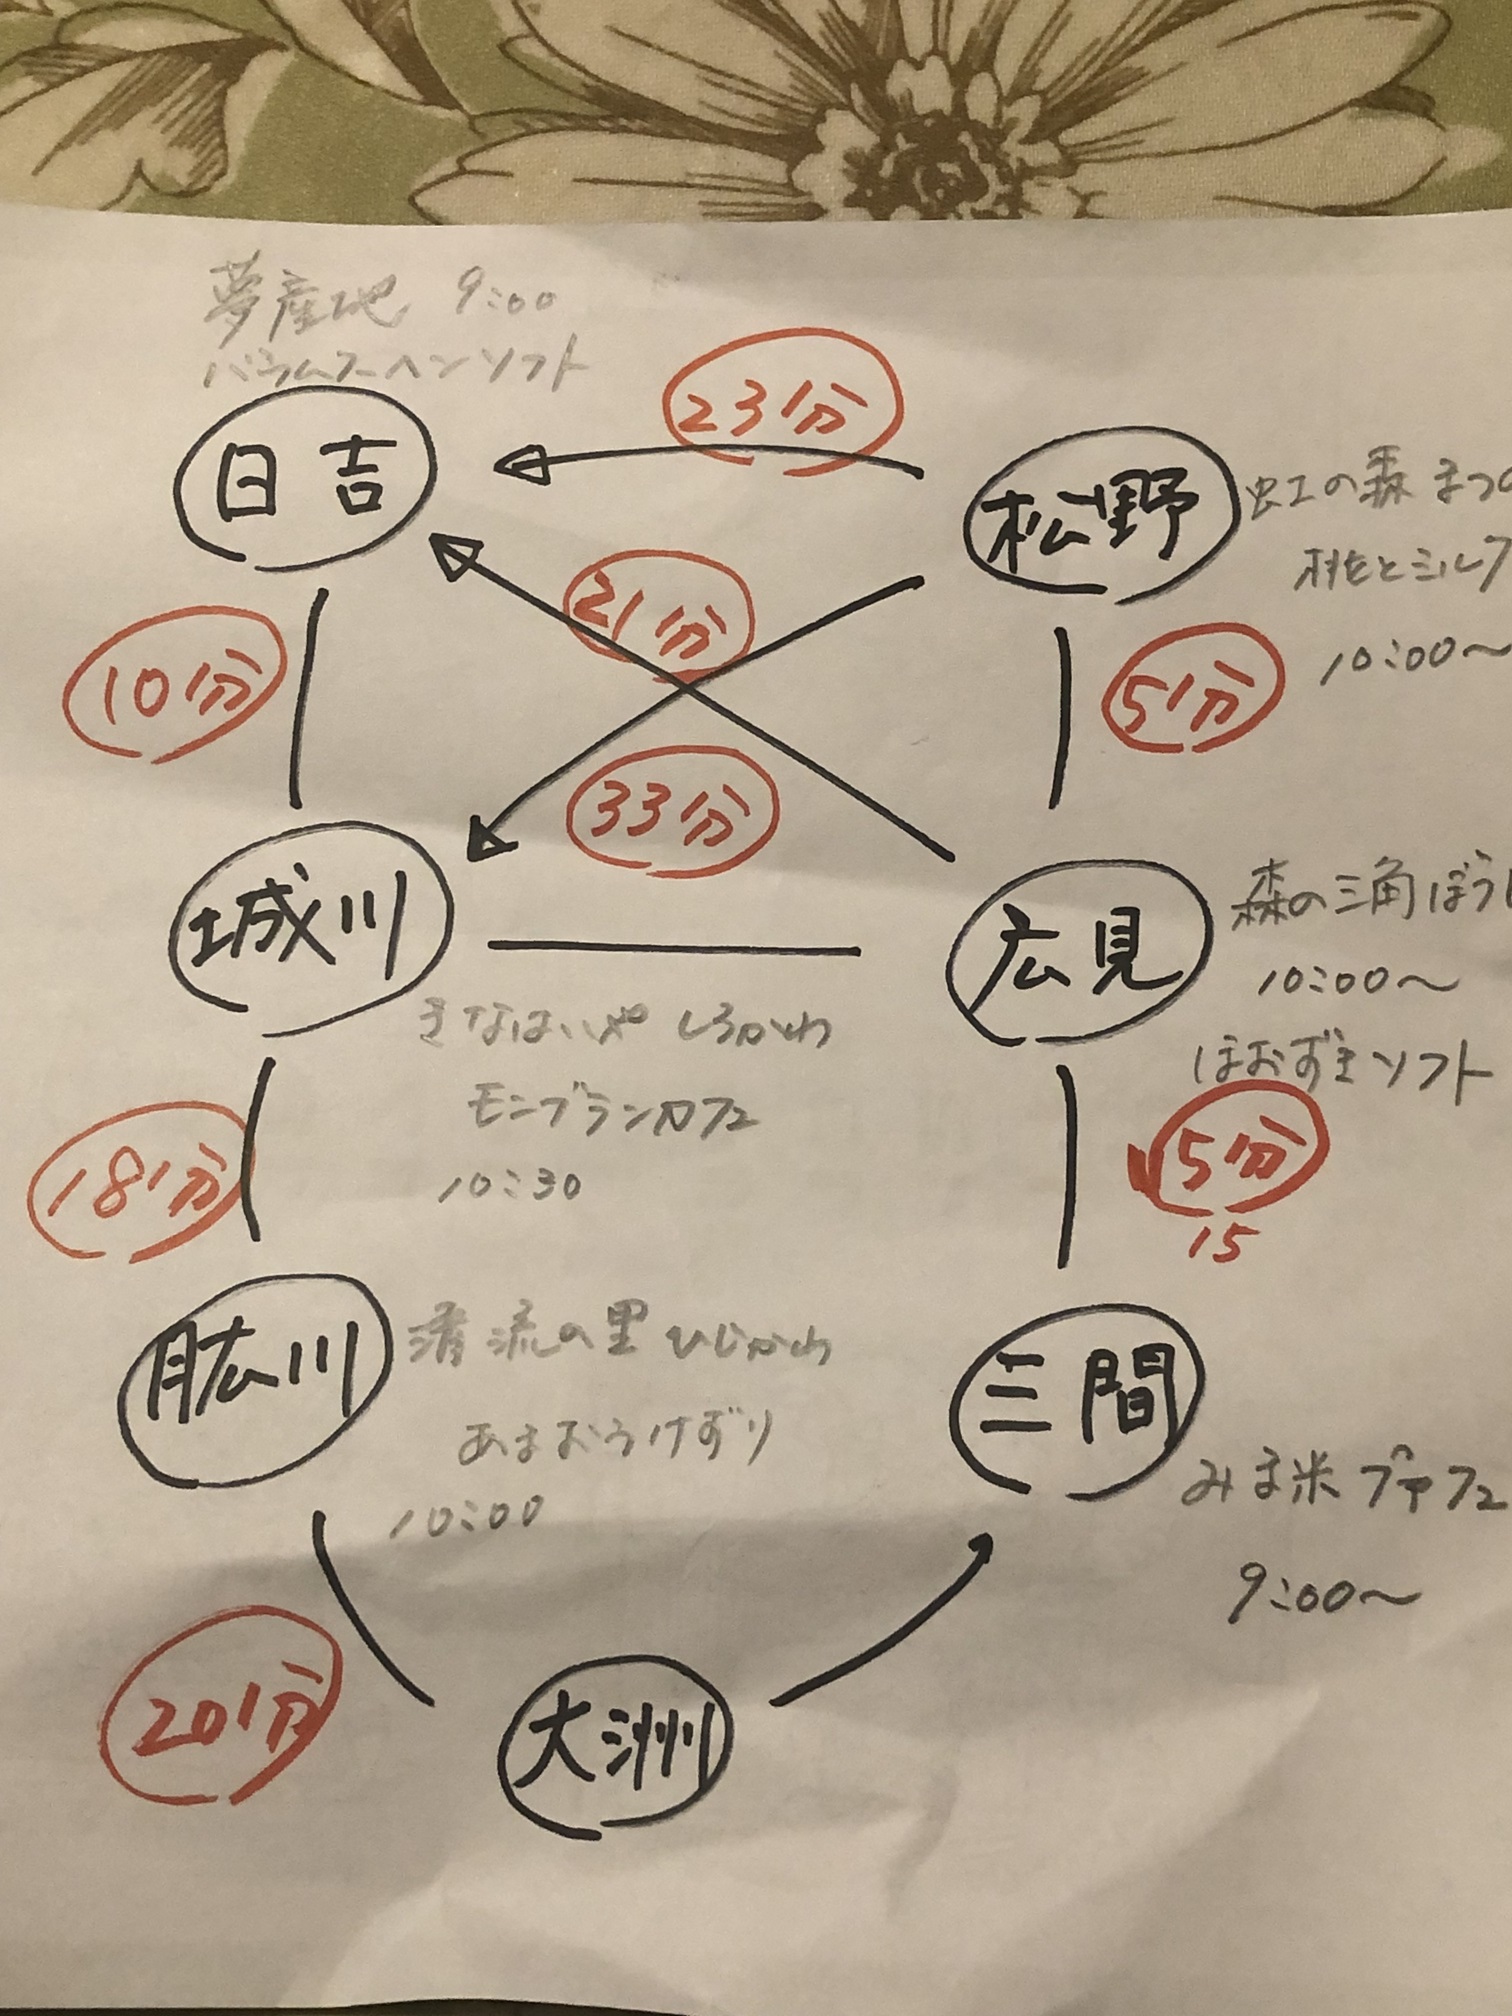 夢産地 9:00
バウムクーヘンソフト
23分
日吉
松野
虹の森 まつの
桃とミルク
10:00〜
21分
10分
5分
33分
城川
広見
森の三角ぼうし
10:00〜
ほおずきソフト
きなはいや しろかわ
モンブランカフェ
10:30
18分
5分
15
肱川
清流の里 ひじかわ
あまおうけずり
10:00
三間
みま米 プァフェ
9:00〜
20分
大洲